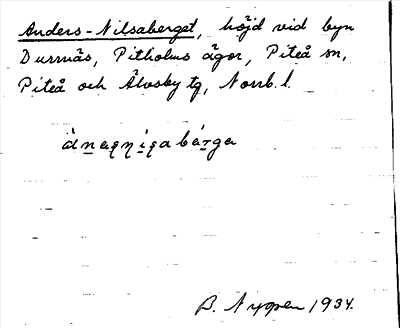 Anders-Nilsaberget, höjd vid byn
Durrnäs, Pitholms ägor, Piteå sn,
Piteå och Älvsby tg, Norrb. l.
B. Nyggen 1934.